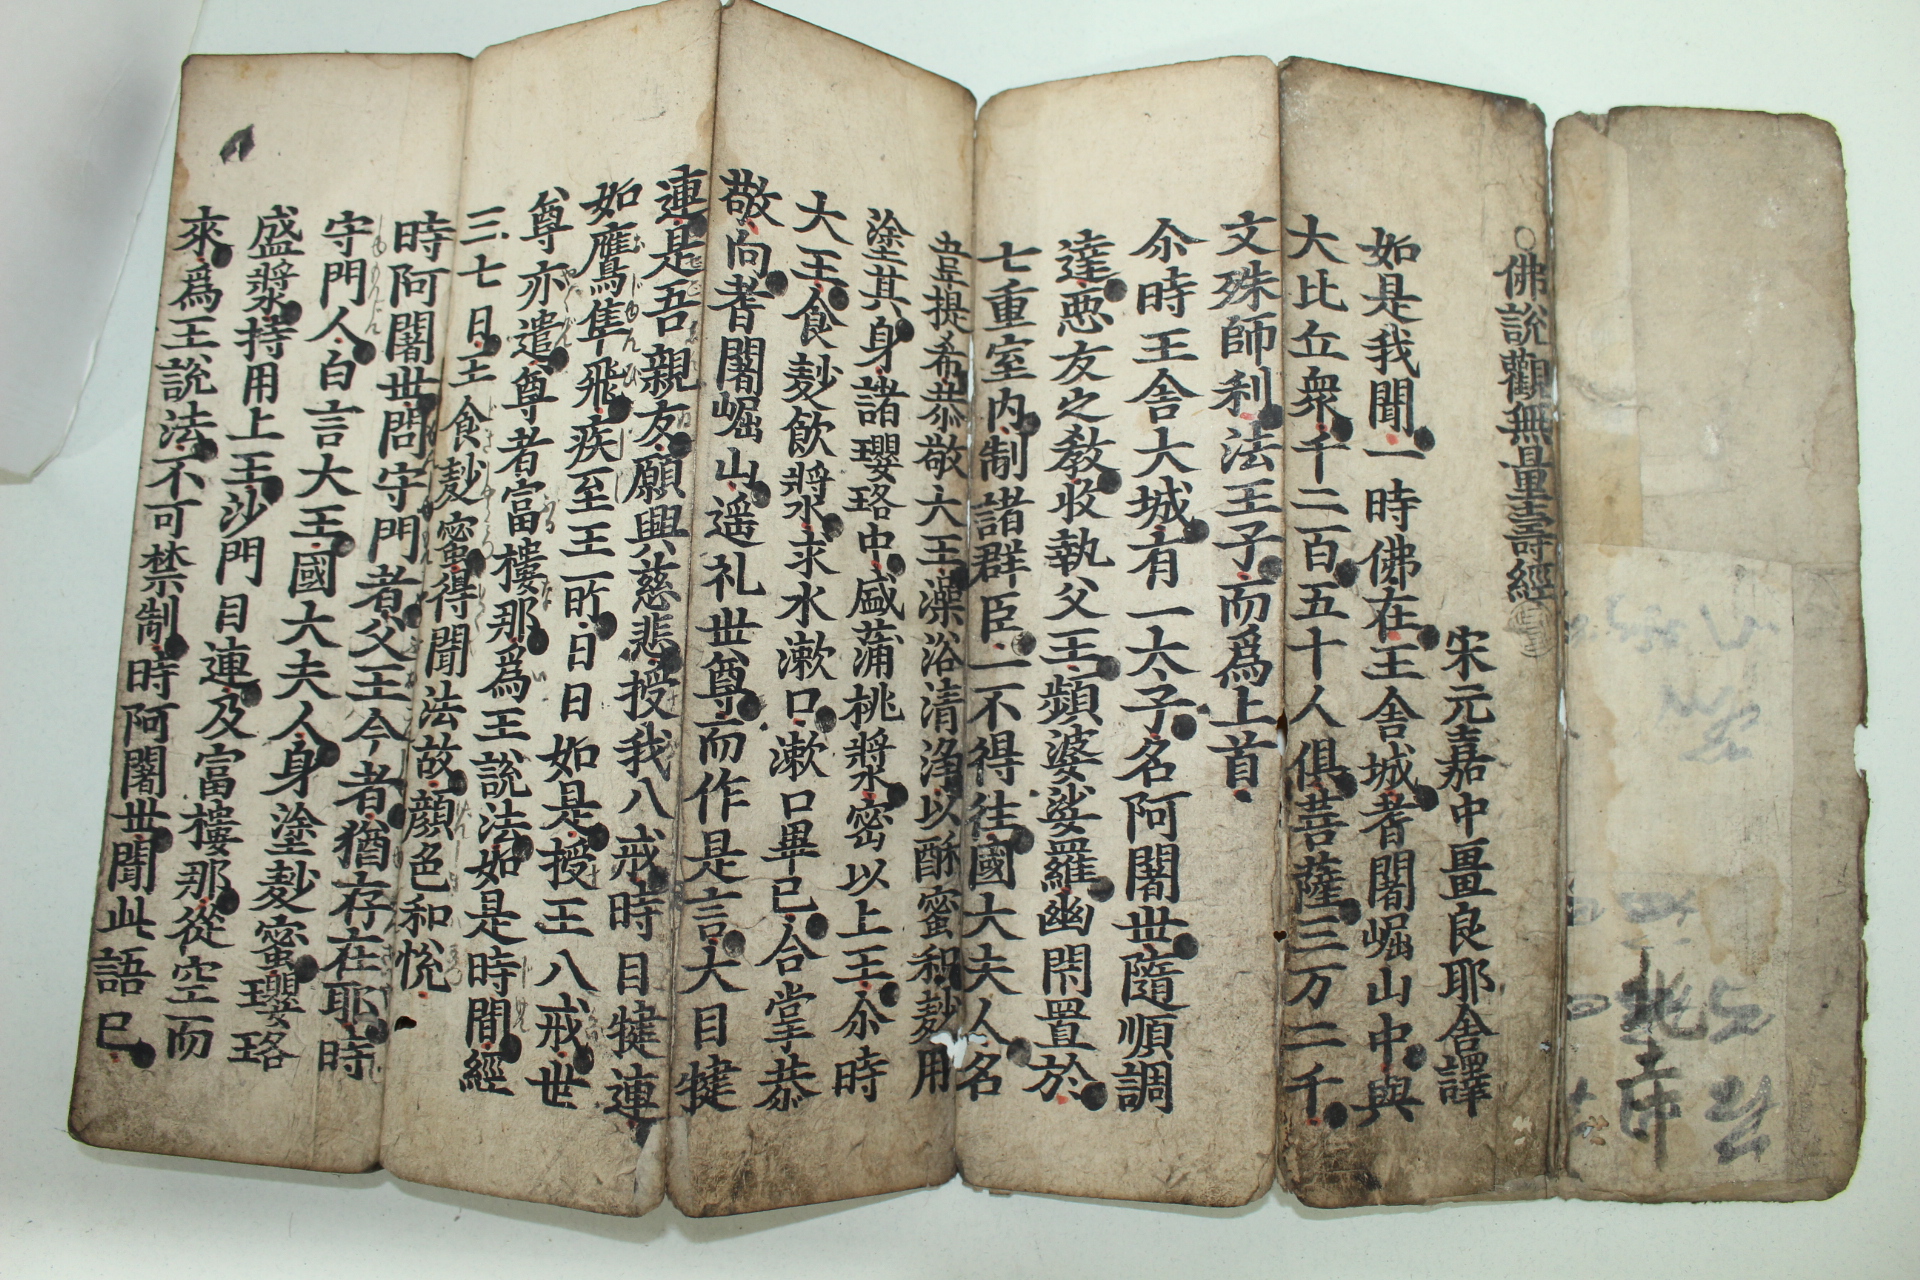 佛說觀無量壽經
宋元嘉中畺良耶舍譯
如是我聞一時佛在王舍城耆闍崛山中與
大比丘衆千二百五十人俱菩薩三万二千
文殊師利法王子而爲上首
尒時王舍大城有一太子名阿闍世隨順調
達悪友之敎收執父王頻婆娑羅幽閇置於
七重室内制諸群臣一不得往國大夫人名
韋提希恭敬大王澡浴清浄以酥蜜和麨用
塗其身諸瓔珞中盛蒲桃漿密以上王尒時
大王食麨飲漿求水漱口漱口畢已合掌恭
敬向耆闍崛山遥礼世尊而作是言大目犍
連是吾親友願興慈悲授我八戒時目犍連
如鷹隼飛疾至王所日日如是授王八戒世
尊亦遣尊者富樓那爲王說法如是時間經
三七日王食麨蜜得聞法故顔色和悅
時阿闍世問守門者父王今者猶存在耶時
守門人白言大王國大夫人身塗麨蜜瓔珞
盛漿持用上王沙門目連及富樓那從空而
來爲王說法不可禁制時阿闍世聞此語已